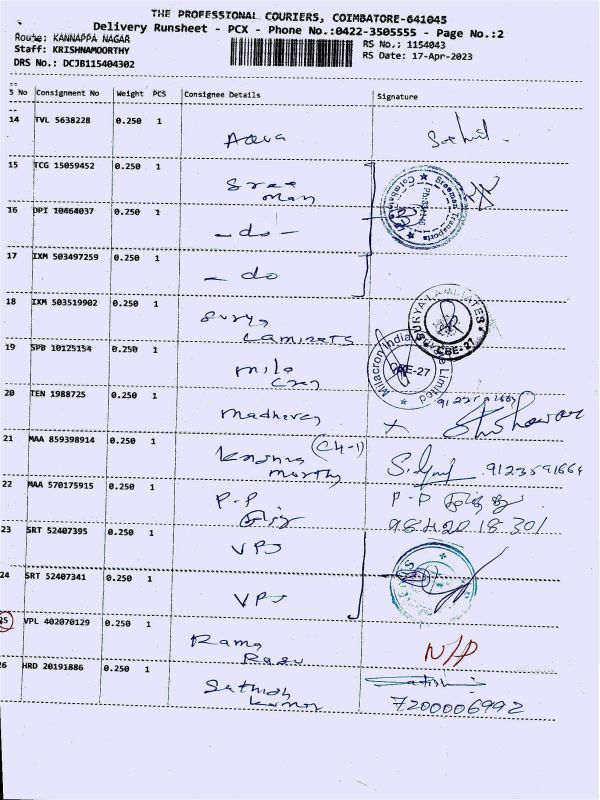 THE PROFESSIONAL COURIERS, COIMBATORE-641045
Delivery Runsheet - PCX - Phone No.:0422-3505555 - Page No.:2
Route: KANNAPPA NAGAR
RS No.: 1154043
Staff: KRISHNAMOORTHY
RS Date: 17-Apr-2023
DRS No.: DCJB115404302
S No Consignment No Weight PCS Consignee Details Signature
14 TVL 5638228 0.250 1
15 TCG 15059452 0.250 1 Sree
man
Sreeman Transports
16 DPI 10464037 0.250 1 - do -
17 IXM 503497259 0.250 1 - do
18 IXM 503519902 0.250 1 Surya
Laminats
SURYA LAMINATES
CBE-27
19 SPB 10125154 0.250 1 mila
cron
Milacron India Private Limited
CBE-27
20 TEN 1988725 0.250 1
21 MAA 859398914 0.250 1 Krishna (CH-1)
morthy
9123591664
22 MAA 570175915 0.250 1 P.P
P-P
9842018301
23 SRT 52407395 0.250 1 VPS
24 SRT 52407341 0.250 1 VPS
25 VPL 402070129 0.250 1 Rama
Rasu
N/P
26 HRD 20191886 0.250 1 Sathish
kumar
Satish
7200006992